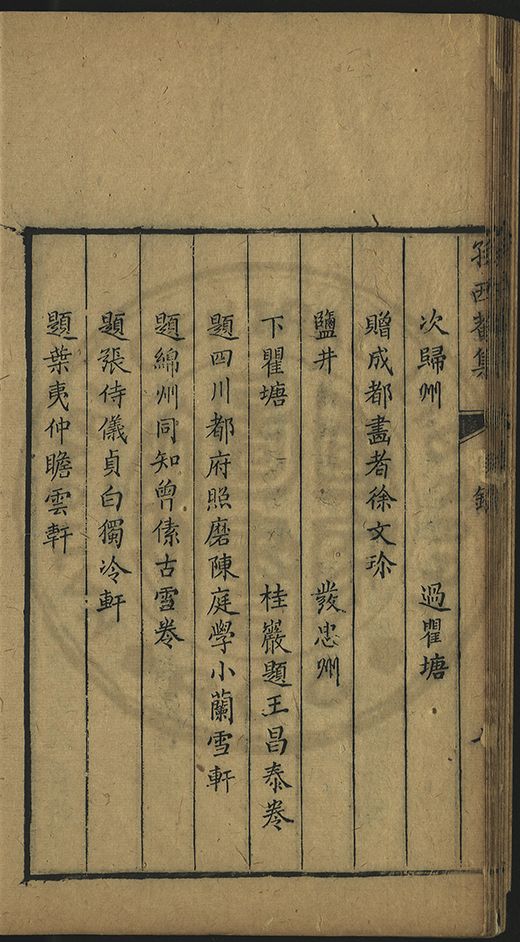 西菴集
次歸州　過瞿塘
贈成都畫者徐文珍
鹽井　發忠州
下瞿塘　桂巖題王昌泰卷
題四川都府照磨陳庭學小蘭雪軒
題綿州同知曾傃古雪卷
題張侍儀貞白獨冷軒
題葉夷仲瞻雲軒